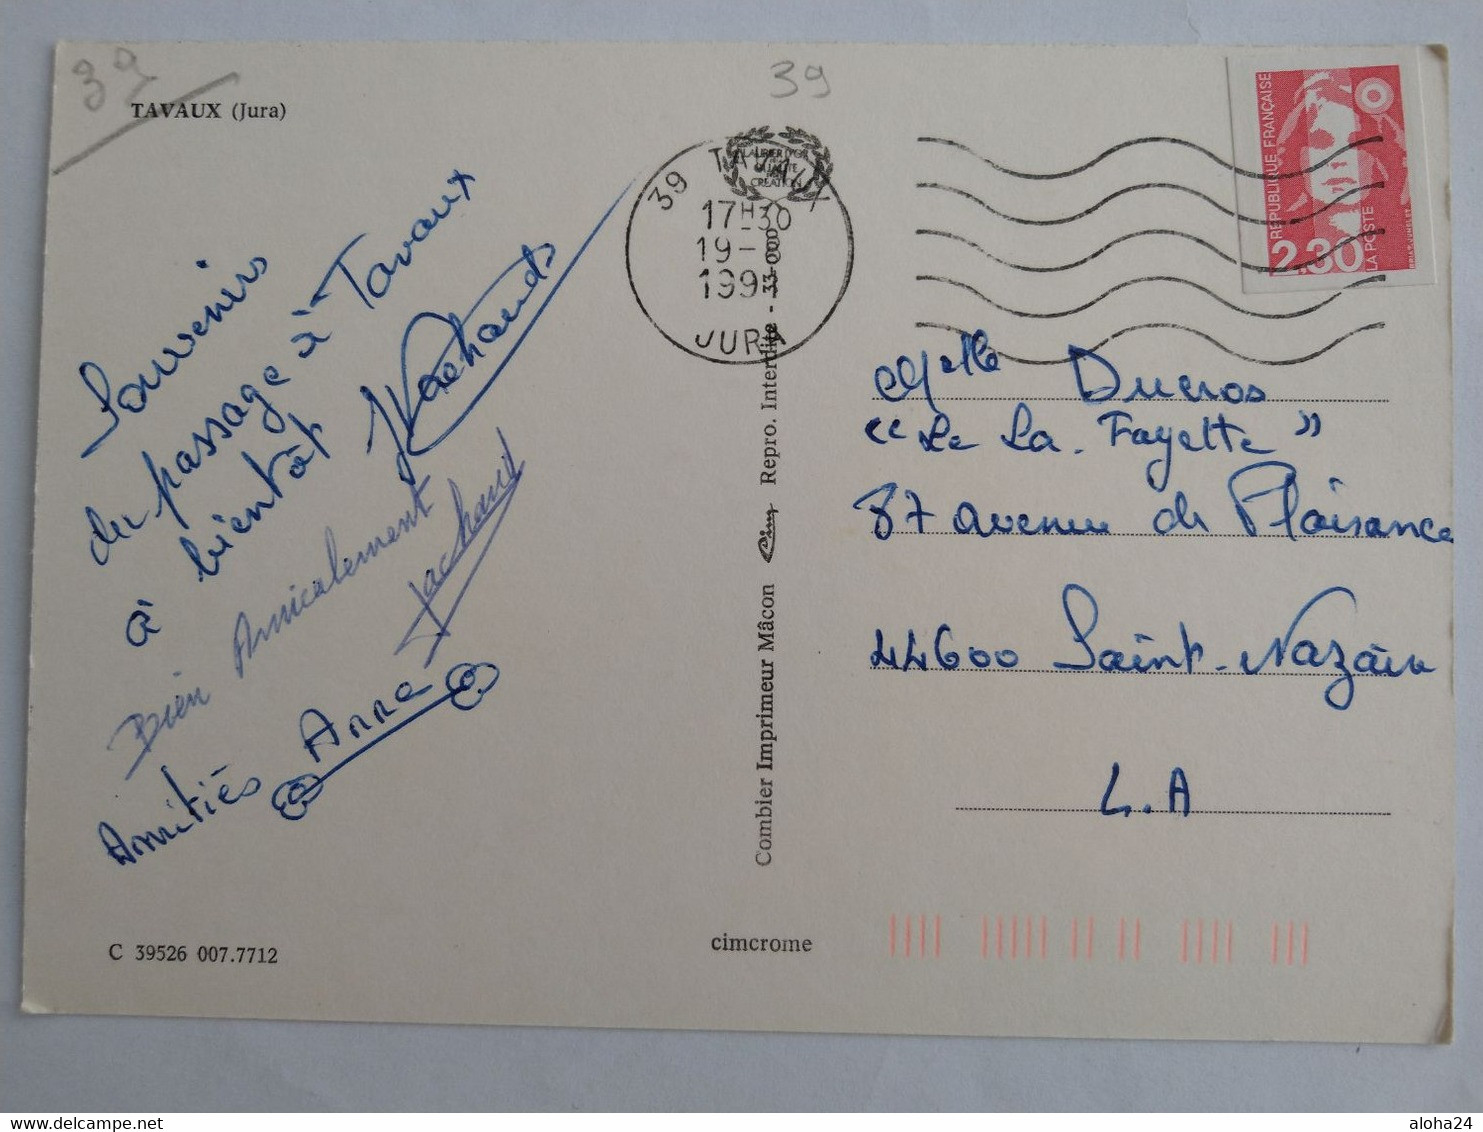 39
TAVAUX (Jura)
39
39 TAVAUX
17H30
19-
1991
JURA
RÉPUBLIQUE FRANÇAISE
2,30
LA POSTE
Souvenirs
du passage à Tavaux
à bientôt
Bien Amicalement
Amitiés Anne
Melle Ducros
"Le La. Fayette"
87 avenue de Plaisance
44600 Saint-Nazaire
L.A
Combier Imprimeur Mâcon Cim Repro. Interdite - 33-000
C 39526 007.7712
cimcrome
www.delcampe.net
aloha24